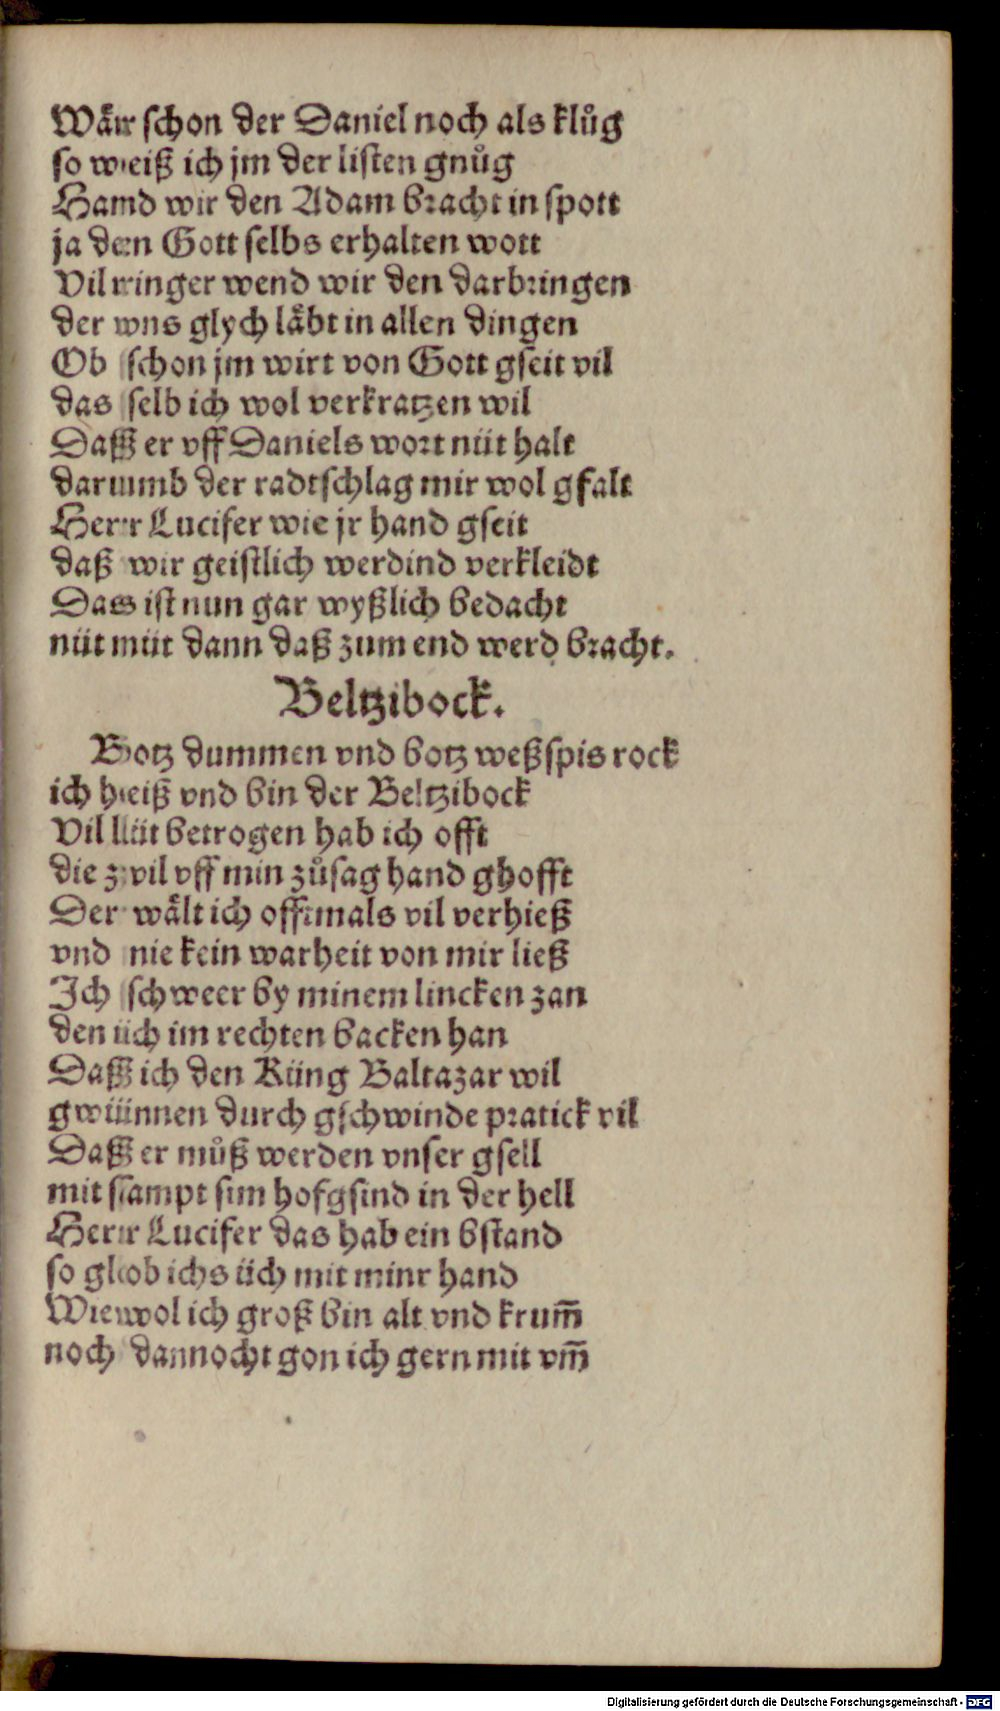 Waͤr schon der Daniel noch als kluͦg
so weiß ich jm der listen gnuͦg
Hand wir den Adam bracht in spott
ja den Gott selbs erhalten wott
Vil ringer wend wir den darbringen
der vns glych laͤbt in allen dingen
Ob schon jm wirt von Gott gseit vil
das selb ich wol verkratzen wil
Daß er vff Daniels wort nüt halt
darumb der radtschlag mir wol gfalt
Herr Lucifer wie jr hand gseit
daß wir geistlich werdind verkleidt
Das ist nun gar wyßlich bedacht
nüt mit dann daß zum end werd bracht.
Beltzibock.
Botz dummen vnd botz weßspis rock
ich heiß vnd bin der Beltzibock
Vil lüt betrogen hab ich offt
die zvil vff min zuͦsag hand ghofft
Der waͤlt ich offtmals vil verhieß
vnd nie kein warheit von mir ließ
Ich schweer by minem lincken zan
den ich im rechten backen han
Daß ich den Küng Baltazar wil
gwünnen durch gschwinde pratick vil
Daß er muͦß werden vnser gsell
mit sampt sim hofgsind in der hell
Herr Lucifer das hab ein bstand
so glob ichs üch mit minr hand
Wiewol ich groß bin alt vnd krum̃
noch dannocht gon ich gern mit vm̃
Digitalisierung gefördert durch die Deutsche Forschungsgemeinschaft - DFG